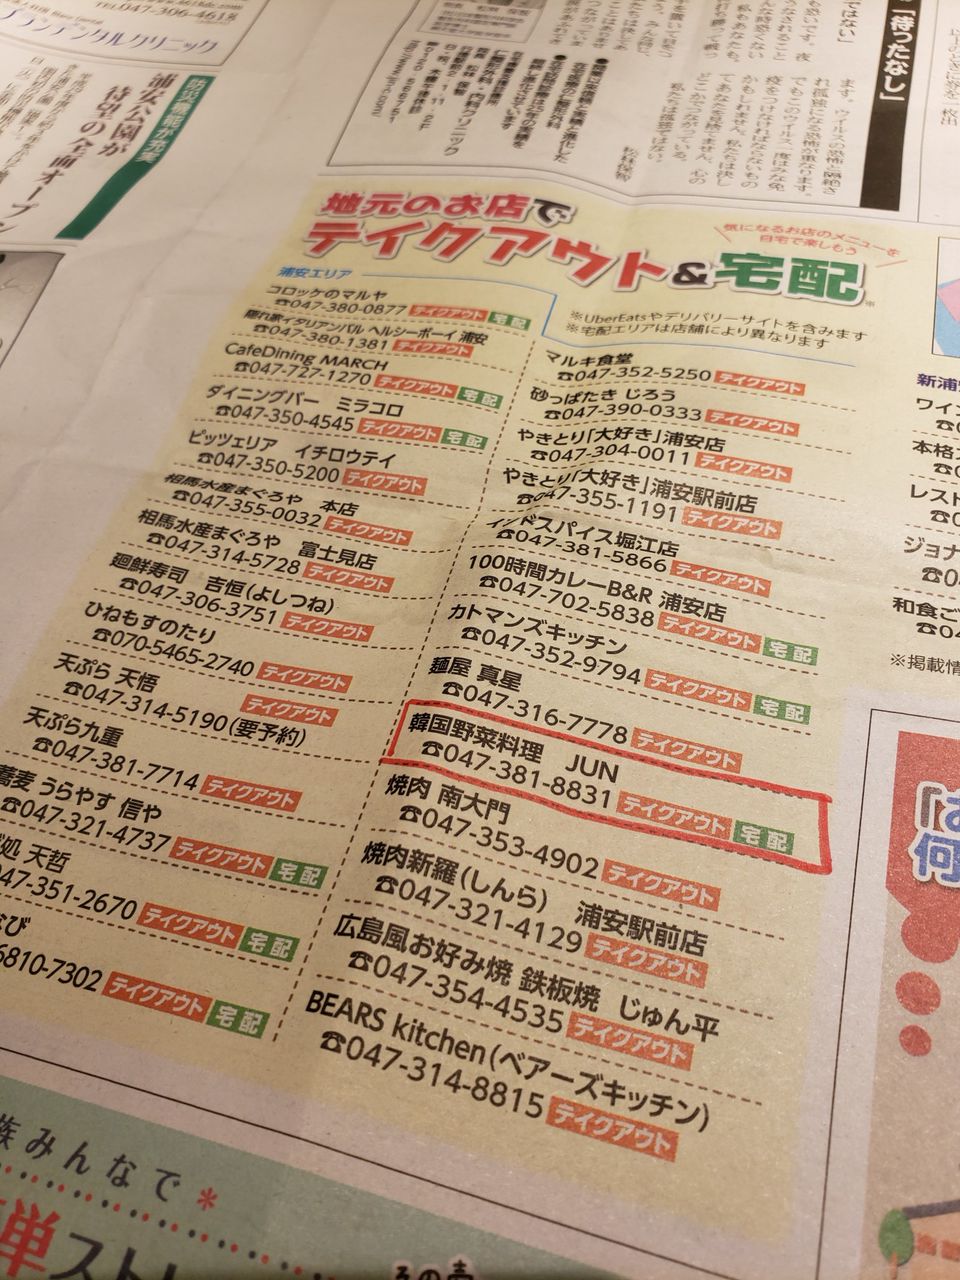 TEL047-306-4618
ランデンタルクリニック
防災機能が充実
浦安公園が
待望の全面オープン
「待ったなし」
ではない」
松林保智
地元のお店で
テイクアウト&宅配
気になるお店のメニューを
自宅で楽しもう
※UberEatsやデリバリーサイトを含みます
※宅配エリアは店舗により異なります
浦安エリア
コロッケのマルヤ
☎047-380-0877 テイクアウト 宅配
隠れ家イタリアンバル ヘルシーボーイ 浦安
☎047-380-1381 テイクアウト
CafeDining MARCH
☎047-727-1270 テイクアウト 宅配
ダイニングバー ミラコロ
☎047-350-4545 テイクアウト 宅配
ピッツェリア イチロウテイ
☎047-350-5200 テイクアウト
相馬水産まぐろや 本店
☎047-355-0032 テイクアウト
相馬水産まぐろや 富士見店
☎047-314-5728 テイクアウト
廻鮮寿司 吉恒(よしつね)
☎047-306-3751 テイクアウト
ひねもすのたり
☎070-5465-2740 テイクアウト
天ぷら 天悟
☎047-314-5190(要予約) テイクアウト
天ぷら九重
☎047-381-7714 テイクアウト
蕎麦 うらやす 信や
☎047-321-4737 テイクアウト 宅配
処 天哲
047-351-2670 テイクアウト 宅配
び
6810-7302 テイクアウト 宅配
マルキ食堂
☎047-352-5250 テイクアウト
砂っぱたき じろう
☎047-390-0333 テイクアウト
やきとり「大好き」浦安店
☎047-304-0011 テイクアウト
やきとり「大好き」浦安駅前店
☎047-355-1191 テイクアウト
インドスパイス堀江店
☎047-381-5866 テイクアウト
100時間カレーB&R 浦安店
☎047-702-5838 テイクアウト 宅配
カトマンズキッチン
☎047-352-9794 テイクアウト 宅配
麺屋 真星
☎047-316-7778 テイクアウト
韓国野菜料理 JUN
☎047-381-8831 テイクアウト 宅配
焼肉 南大門
☎047-353-4902 テイクアウト
焼肉新羅(しんら) 浦安駅前店
☎047-321-4129 テイクアウト
広島風お好み焼 鉄板焼 じゅん平
☎047-354-4535 テイクアウト
BEARS kitchen(ベアーズキッチン)
☎047-314-8815 テイクアウト
新浦
ワイ
本格
レスト
ジョナ
和食ご
※掲載情
「お
何
族みんなで
単スト